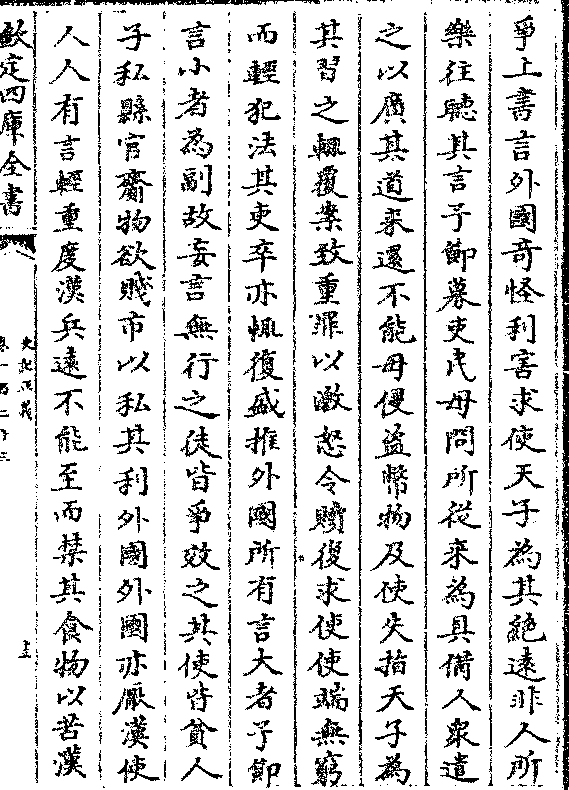 爭上書言外國奇怪利害求使天子為其絶遠非人所
樂往聽其言予節募吏民毋問所從來為具備人衆遣
之以廣其道來還不能毋侵盜幣物及使失指天子為
其習之輒覆案致重罪以激怒令贖復求使使端無窮
而輕犯法其吏卒亦輒復盛推外國所有言大者予節
言小者為副故妄言無行之徒皆爭效之其使皆貧人
子私縣官齎物欲賤市以私其利外國外國亦厭漢使
人人有言輕重度漢兵逺不能至而禁其食物以苦漢
欽定四庫全書
史記正義
卷一百二十三